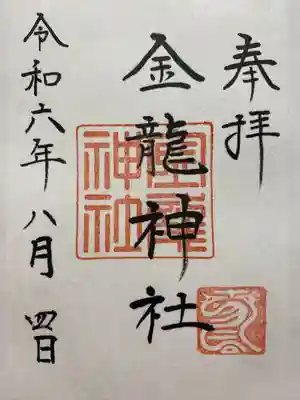 奉拝
金龍神社
令和六年八月四日
金龍神社